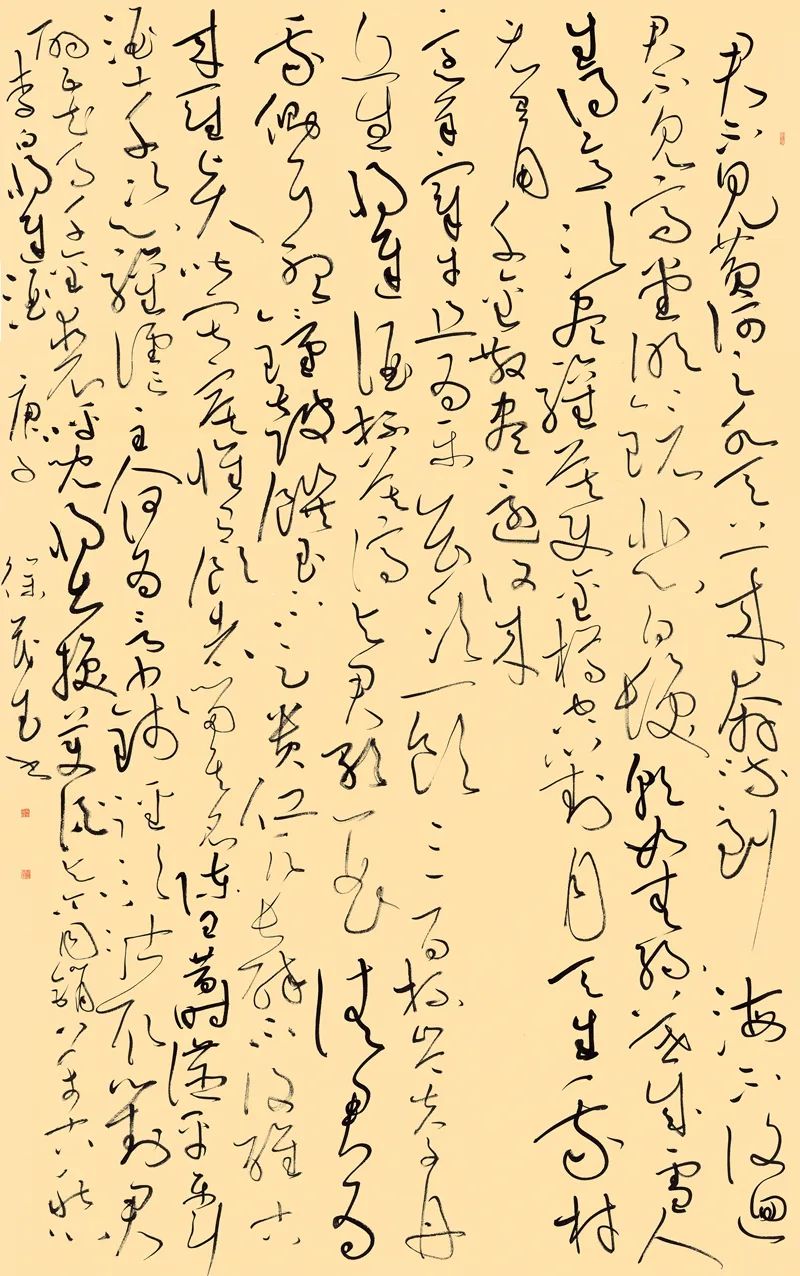 君不見黃河之水天上來奔流到海不復迴
君不見高堂明鏡悲白髮朝如青絲暮成雪人
生得意須盡歡莫使金樽空對月天生我材
必有用千金散盡還復來
烹羊宰牛且為樂會須一飲三百杯岑夫子丹
丘生將進酒杯莫停與君歌一曲請君為
我側耳聽鐘鼓饌玉不足貴但願長醉不復醒古
來聖賢皆寂寞惟有飲者留其名陳王昔時宴平樂斗
酒十千恣歡謔主人何為言少錢徑須沽取對君
酌五花馬千金裘呼兒將出換美酒與爾同銷萬古愁
李白將進酒 庚子 徐